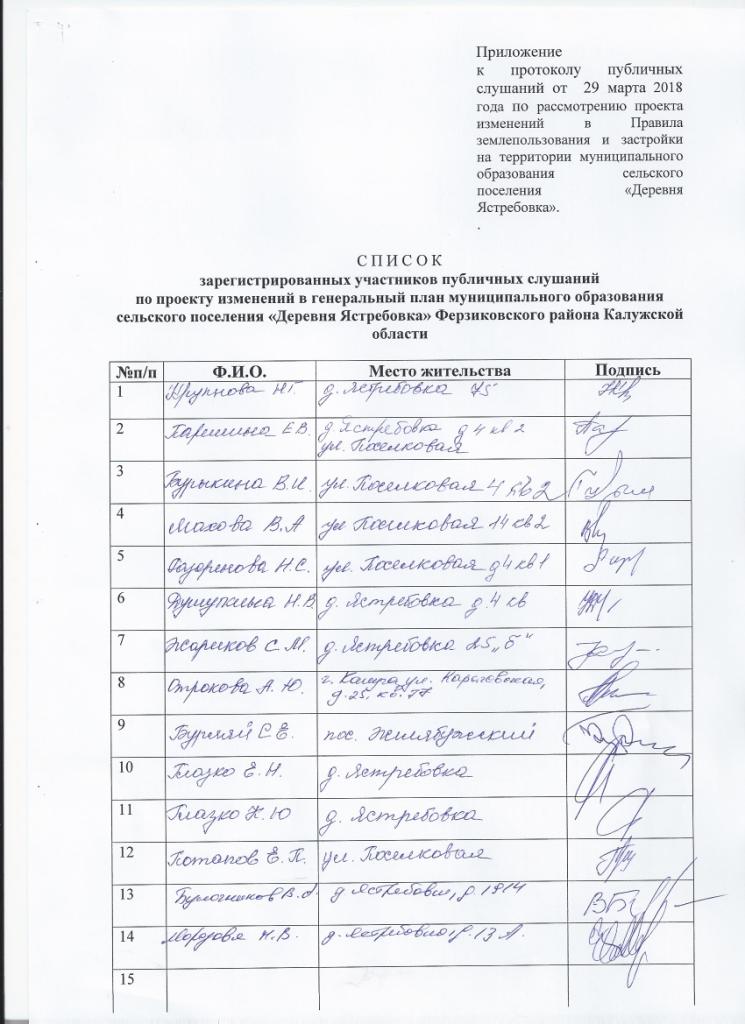 Приложение
к протоколу публичных
слушаний от 29 марта 2018
года по рассмотрению проекта
изменений в Правила
землепользования и застройки
на территории муниципального
образования сельского
поселения «Деревня
Ястребовка».
.
С П И С О К
зарегистрированных участников публичных слушаний
по проекту изменений в генеральный план муниципального образования
сельского поселения «Деревня Ястребовка» Ферзиковского района Калужской
области
№п/п Ф.И.О. Место жительства Подпись
1 Крупнова Н.Г. д. Ястребовка 75
2 Паришина Е.В. д Ястребовка д 4 кв 2
ул. Поселковая
3 Бурыкина В.И. ул. Поселковая 4 кв 2
4 Махова В.А ул Поселковая 14 кв 2
5 Н.С. ул. Поселковая д 4 кв 1
6 Н.В. д. Ястребовка д. 4 кв
7 Жариков С.М. д. Ястребовка 25 „б“
8 Строкова А.Ю. г. Калуга, ул.
д. 25, кв. 77
9 Бурлай С Е. пос.
10 Глазко Е.Н. д. Ястребовка
11 Глазко Н.Ю д. Ястребовка
12 Потапов Е.П. ул. Поселковая
13 Булочников В. д
14 К.В. д. 13 А.
15